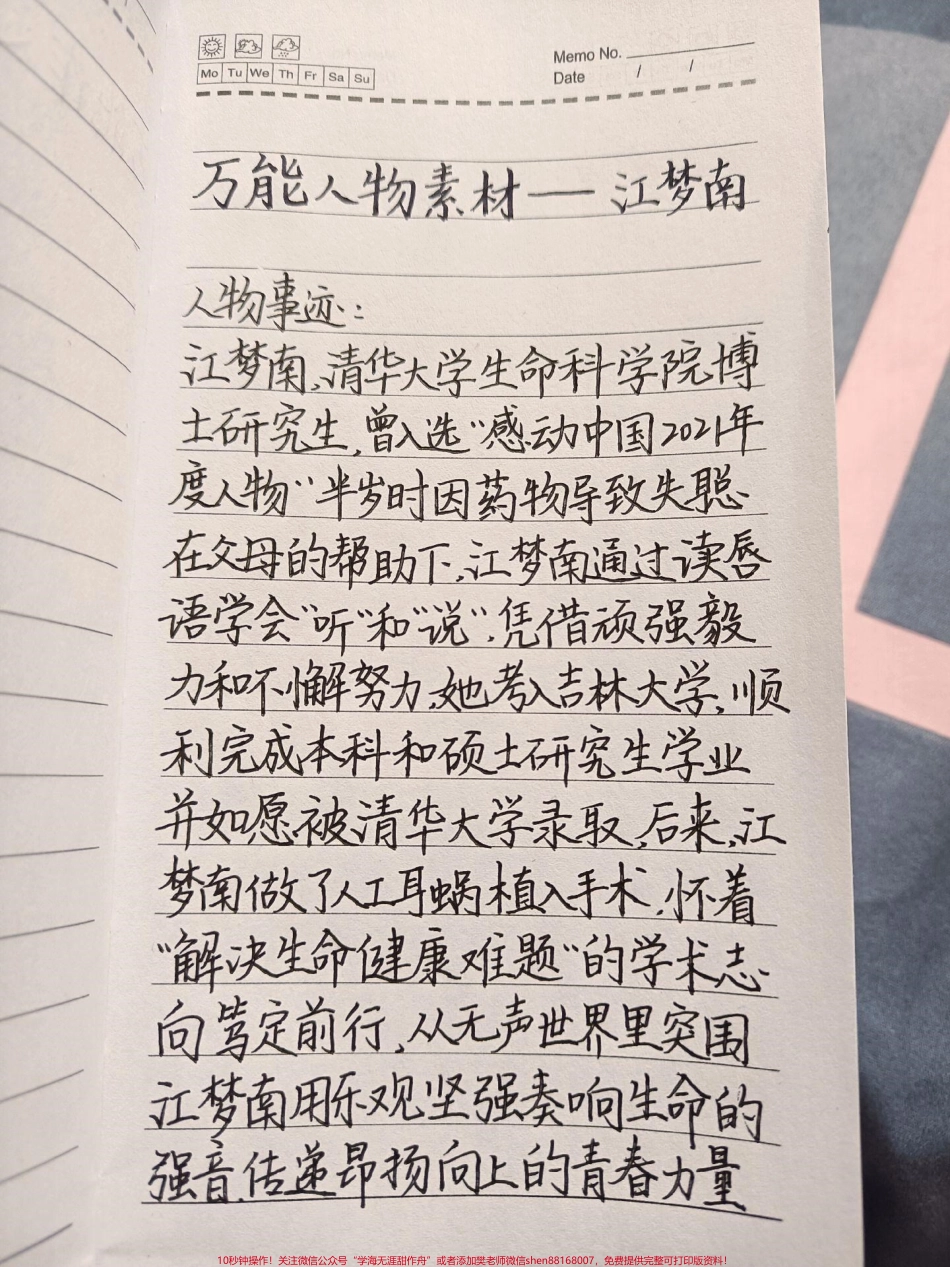 Memo No.
Mo Tu We Th Fr Sa Su
Date / /
万能人物素材——江梦南
人物事迹：
江梦南,清华大学生命科学院博
士研究生,曾入选“感动中国2021年
度人物”半岁时因药物导致失聪
在父母的帮助下,江梦南通过读唇
语学会“听”和“说”.凭借顽强毅
力和不懈努力,她考入吉林大学,顺
利完成本科和硕士研究生学业
并如愿被清华大学录取,后来,江
梦南做了人工耳蜗植入手术,怀着
“解决生命健康难题”的学术志
向笃定前行,从无声世界里突围
江梦南用乐观坚强奏响生命的
强音,传递昂扬向上的青春力量
10秒钟操作！关注微信公众号“学海无涯甜作舟”或者添加樊老师微信shen88168007，免费提供完整可打印版资料！